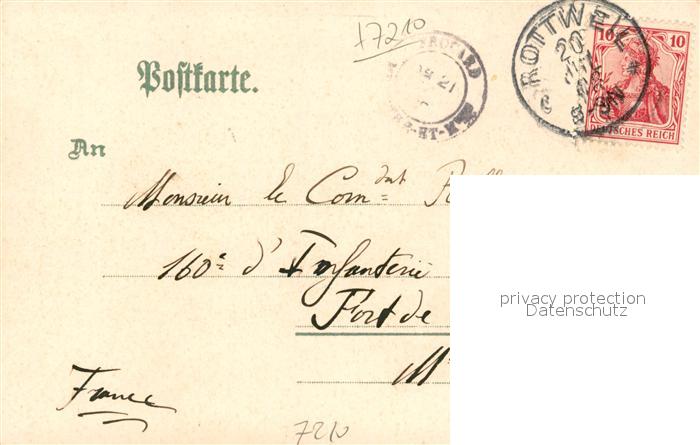 17210
ROTTWEIL
20
10 10
DEUTSCHES REICH
21
Postkarte.
An
Monsieur le Com.dat
160e d'Infanterie
Fort de
privacy protection
Datenschutz
M
France
7210